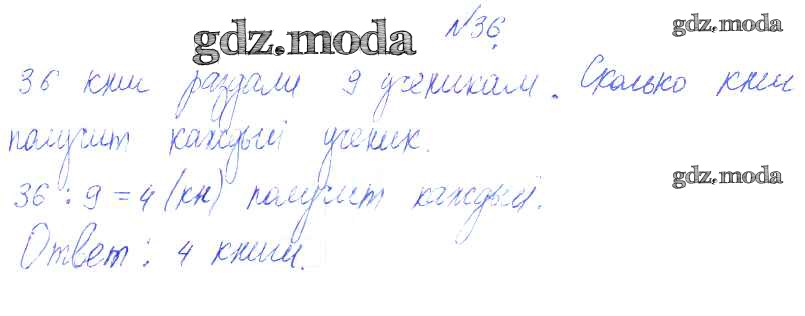 №36.
gdz.moda
gdz.moda
36 книг раздали 9 ученикам. Сколько книг
получит каждый ученик.
36 : 9 = 4 (кн) получит каждый.
gdz.moda
Ответ: 4 книги.